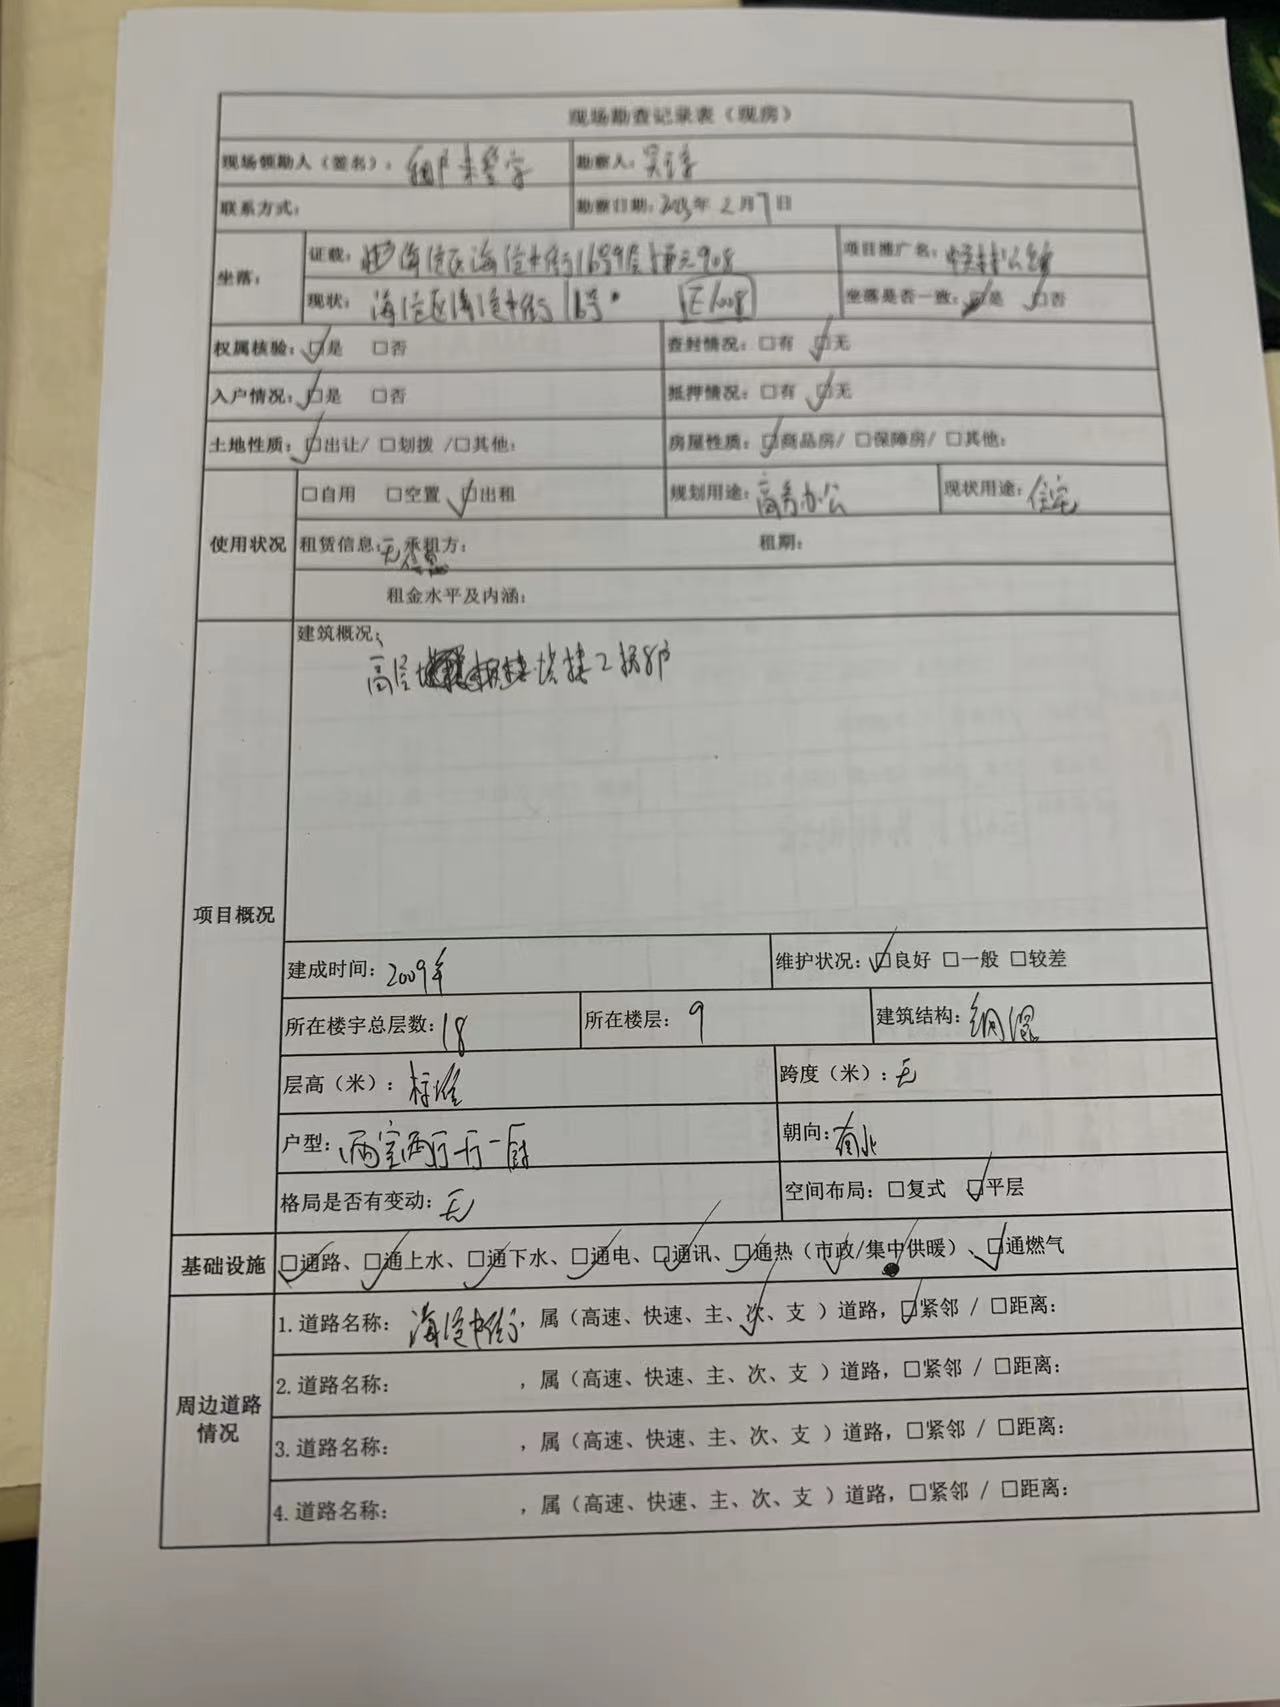 现场勘查记录表（现房）
现场领勘人（签名）：租户未签字 勘察人：
联系方式： 勘察日期：2023年 2月7日
坐落： 证载：海淀区海淀中街16号9层1单元908 项目推广名：公馆
现状：海淀区海淀中街16号 E1008 坐落是否一致：□是 □否
权属核验：□是 □否 查封情况：□有 □无
入户情况：□是 □否 抵押情况：□有 □无
土地性质：□出让/ □划拨 /□其他： 房屋性质：□商品房/ □保障房/ □其他：
使用状况 □自用 □空置 □出租 规划用途：商务办公 现状用途：住宅
租赁信息：无信息 承租方： 租期：
租金水平及内涵：
项目概况 建筑概况：
高层塔楼2梯8户
建成时间：2009年 维护状况：□良好 □一般 □较差
所在楼宇总层数：18 所在楼层：9 建筑结构：钢混
层高（米）：标准 跨度（米）：无
户型：两室两厅一厨 朝向：南北
格局是否有变动：无 空间布局：□复式 □平层
基础设施 □通路、□通上水、□通下水、□通电、□通讯、□通热（市政/集中供暖）、□通燃气
周边道路情况 1.道路名称：海淀中街，属（高速、快速、主、次、支 ）道路，□紧邻 / □距离：
2.道路名称： ，属（高速、快速、主、次、支 ）道路，□紧邻 / □距离：
3.道路名称： ，属（高速、快速、主、次、支 ）道路，□紧邻 / □距离：
4.道路名称： ，属（高速、快速、主、次、支 ）道路，□紧邻 / □距离：